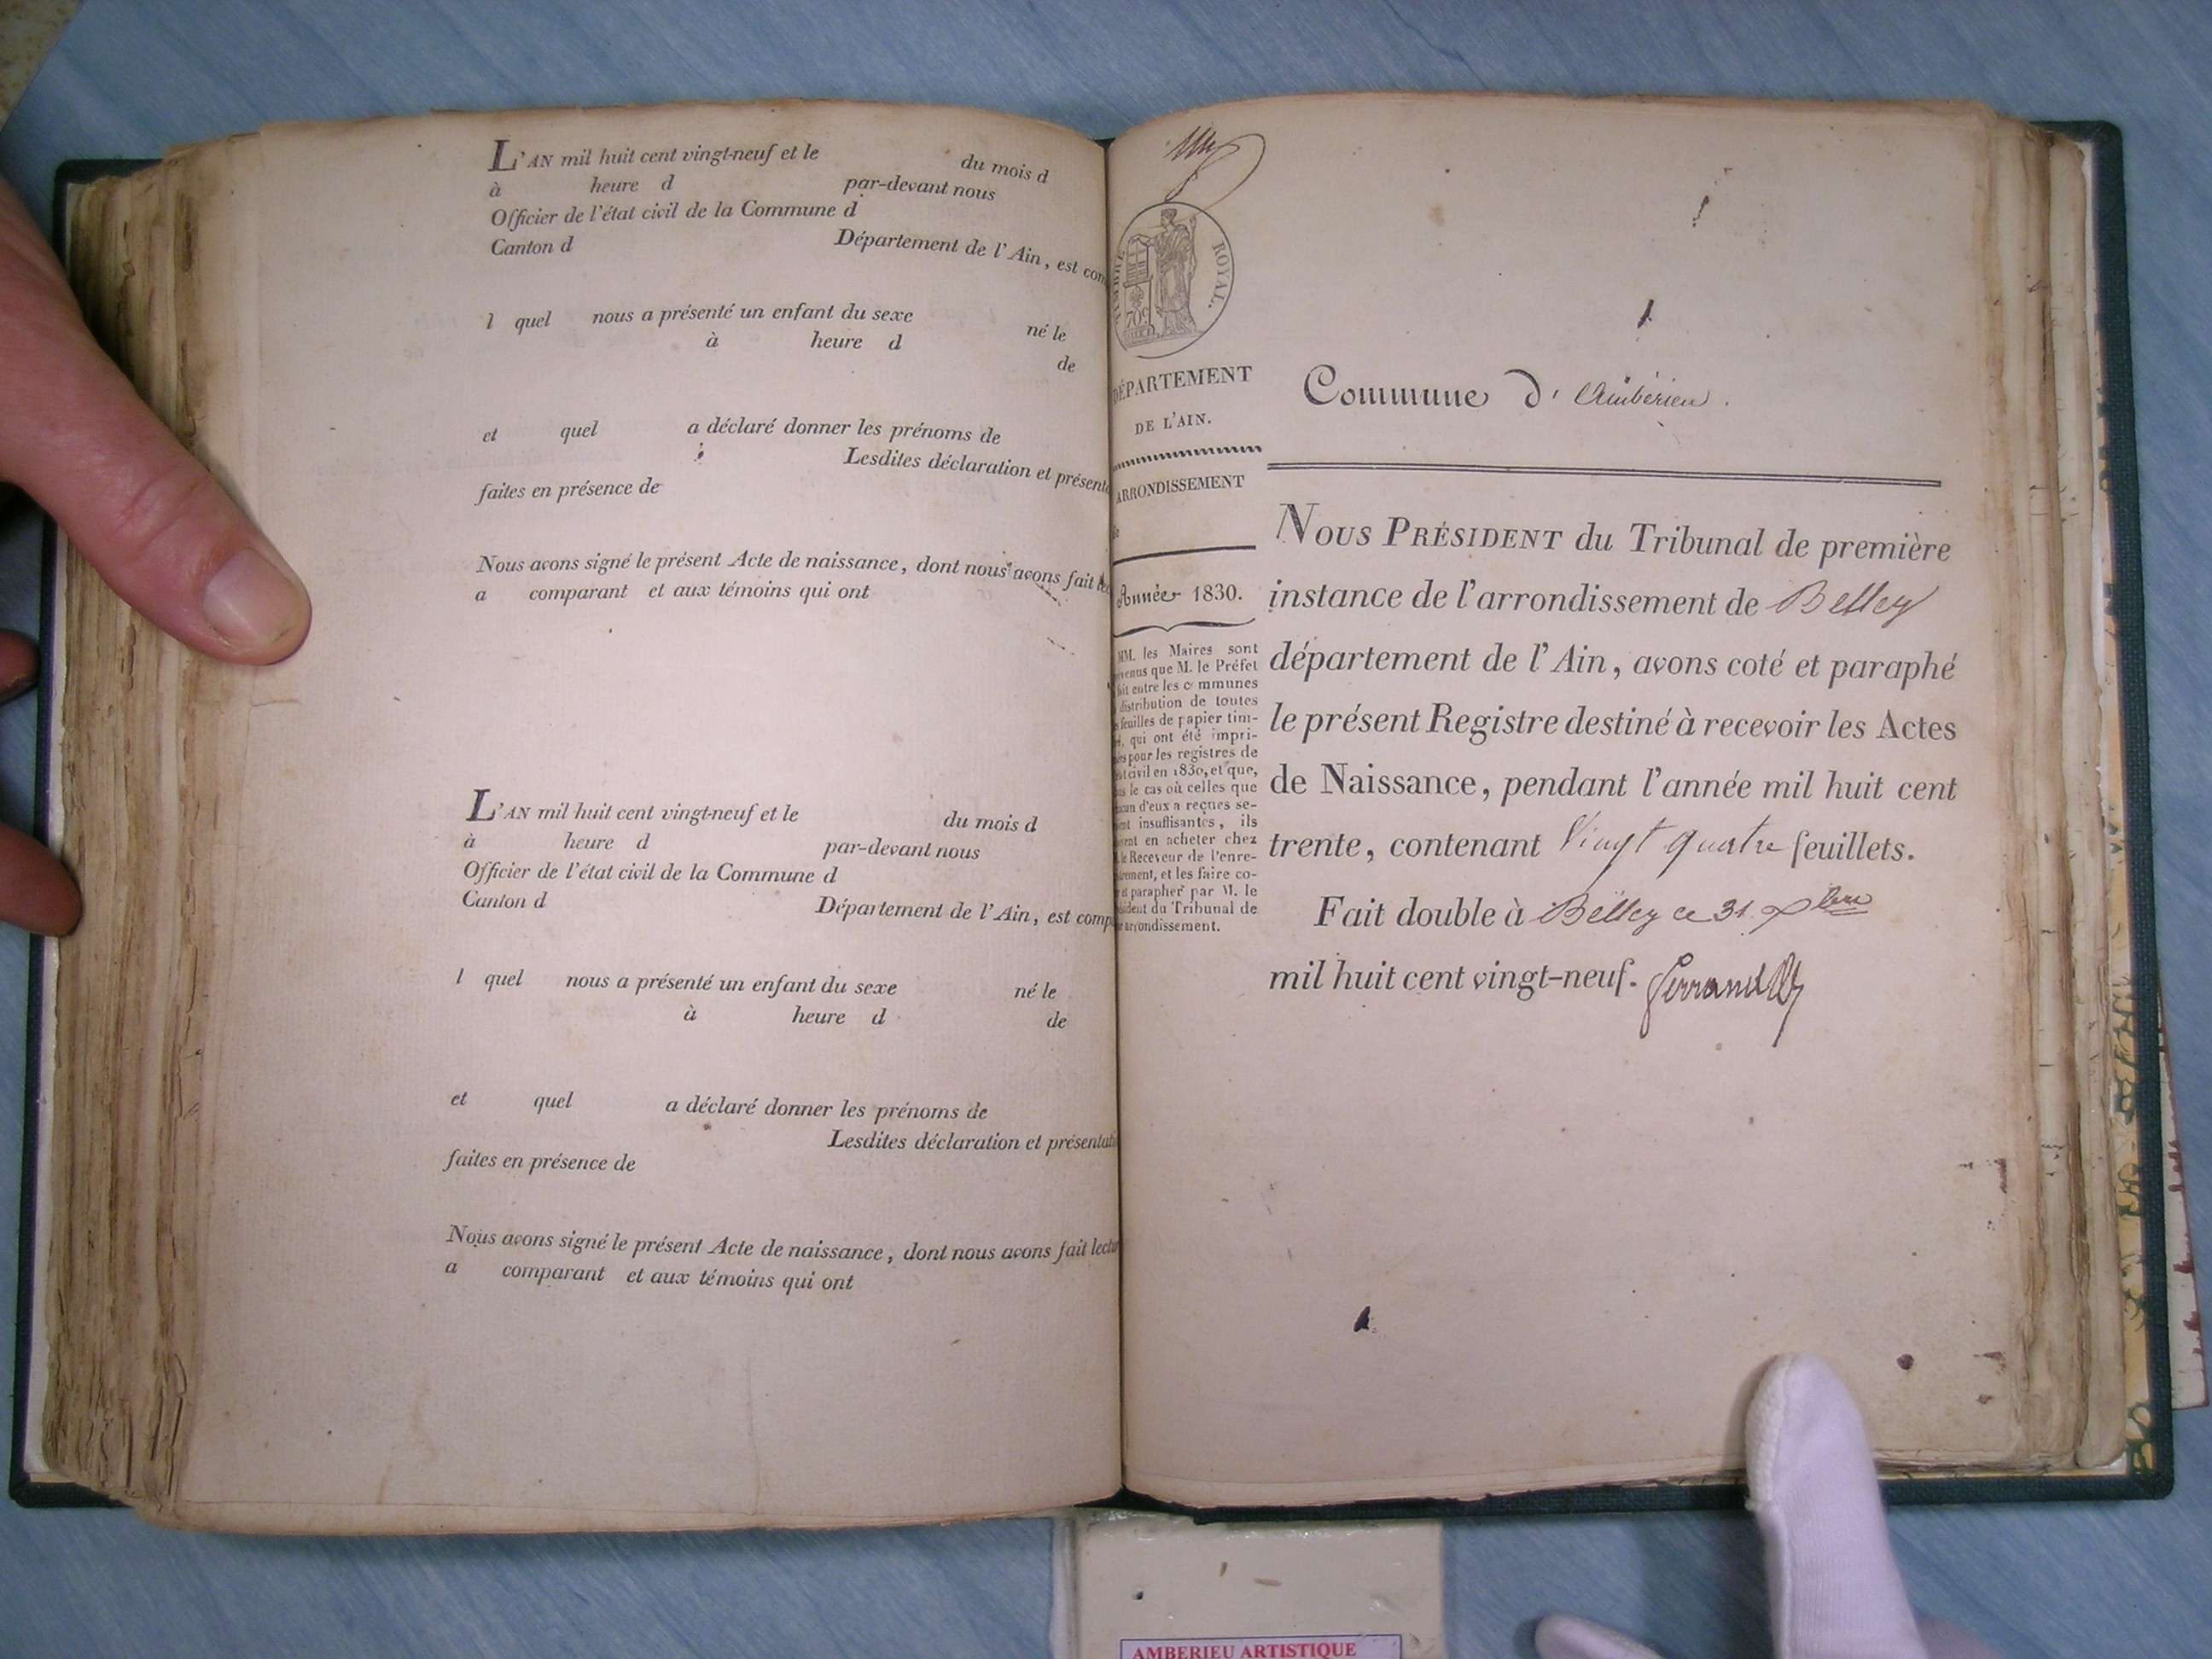 L'AN mil huit cent vingt-neuf et le du mois d
à heure d par-devant nous
Officier de l'état civil de la Commune d
Canton d Département de l'Ain, est com
l quel nous a présenté un enfant du sexe né le
à heure d de
et quel a déclaré donner les prénoms de
Lesdites déclaration et présenta
faites en présence de
Nous avons signé le présent Acte de naissance, dont nous avons fait lec
a comparant et aux témoins qui ont
L'AN mil huit cent vingt-neuf et le du mois d
à heure d par-devant nous
Officier de l'état civil de la Commune d
Canton d Département de l'Ain, est comp
l quel nous a présenté un enfant du sexe né le
à heure d de
et quel a déclaré donner les prénoms de
Lesdites déclaration et présentati
faites en présence de
Nous avons signé le présent Acte de naissance, dont nous avons fait lectu
a comparant et aux témoins qui ont
TIMBRE ROYAL.
DÉPARTEMENT
DE L'AIN.
ARRONDISSEMENT
de
Année 1830.
MM. les Maires sont
venus que M. le Préfet
ait entre les communes
distribution de toutes
feuilles de papier tim-
é, qui ont été impri-
es pour les registres de
état civil en 1830, et que,
ns le cas où celles que
acun d'eux a reçues se-
ent insuffisantes, ils
vront en acheter chez
le Receveur de l'enre-
trement, et les faire co-
r et parapher par M. le
ésident du Tribunal de
r arrondissement.
Commune d' Ambérieu.
NOUS PRÉSIDENT du Tribunal de première
instance de l'arrondissement de Belley
département de l'Ain, avons coté et paraphé
le présent Registre destiné à recevoir les Actes
de Naissance, pendant l'année mil huit cent
trente, contenant Vingt quatre feuillets.
Fait double à Belley ce 31 Xbre
mil huit cent vingt-neuf.
AMBERIEU ARTISTIQUE